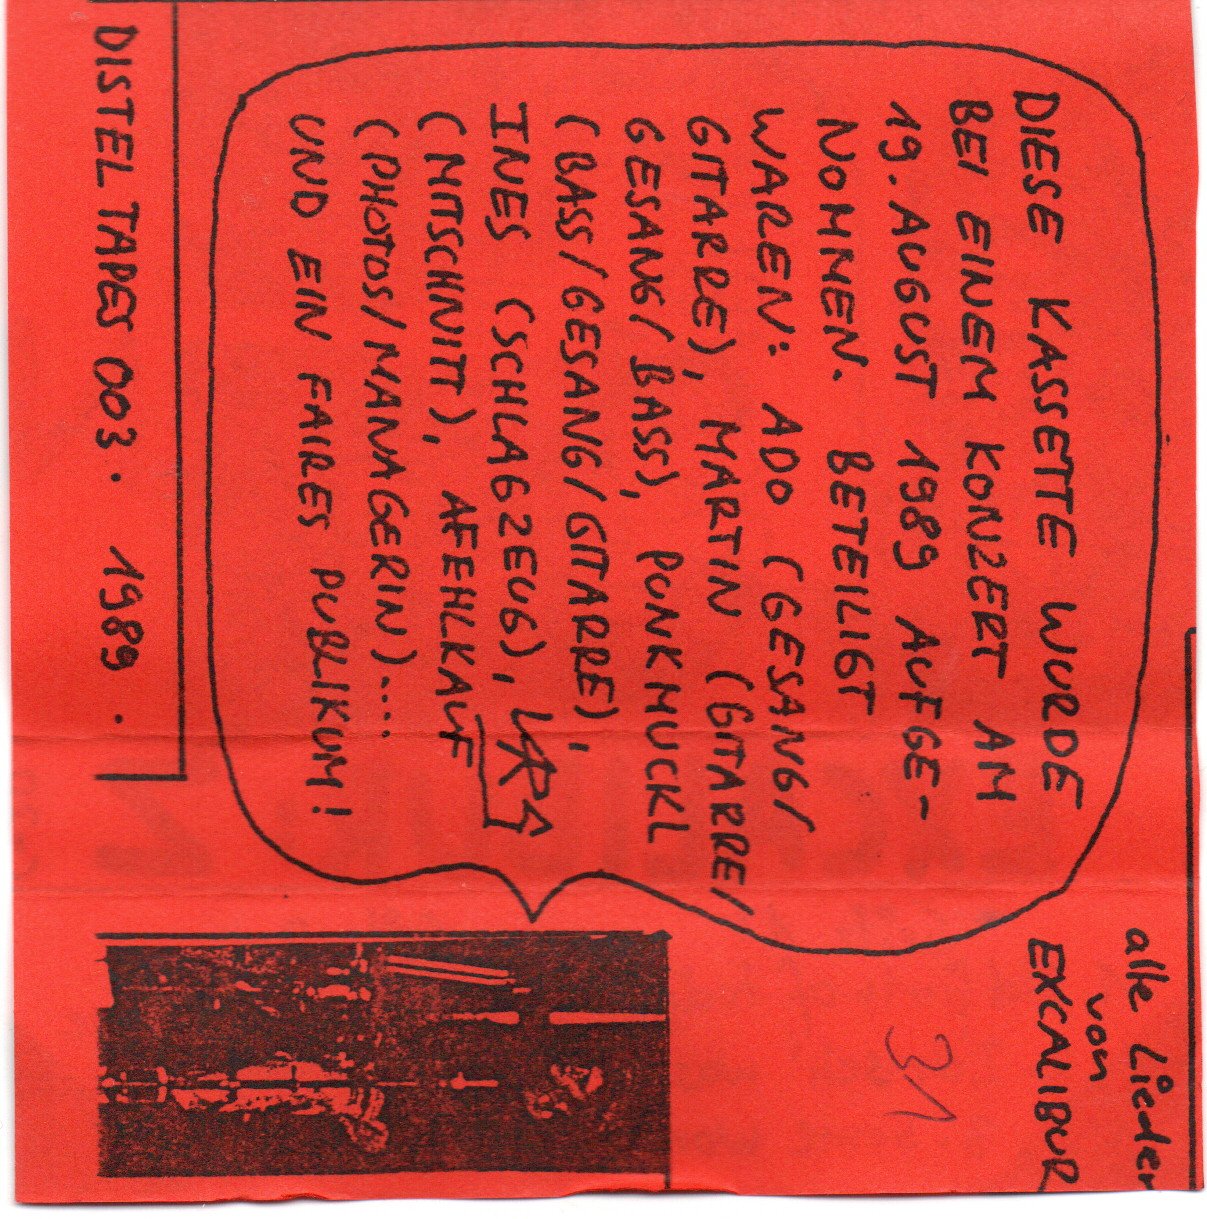 DIESE KASSETTE WURDE
BEI EINEM KONZERT AM
19. AUGUST 1989 AUFGE-
NOMMEN. BETEILIGT
WAREN: ADO (GESANG/
GITARRE), MARTIN (GITARRE/
GESANG/BASS), PUNKMUCKL
(BASS/GESANG/GITARRE),
INES (SCHLAGZEUG),
(MITSCHNITT), AFEHLKAUF
(PHOTOS/MANAGERIN)....
UND EIN FAIRES PUBLIKUM!
alle Lieder
von
EXCALIBUR
31
DISTEL TAPES 003. 1989.